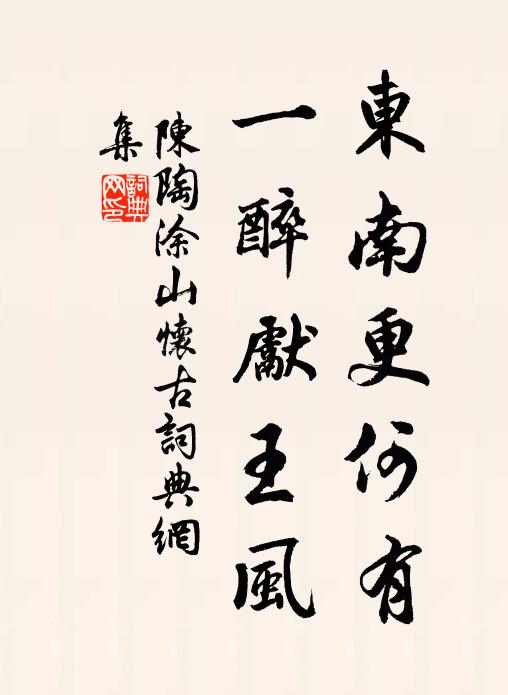 東南更何有
一醉獻王風
陳陶涂山懷古詞典網
集
詞典
网印